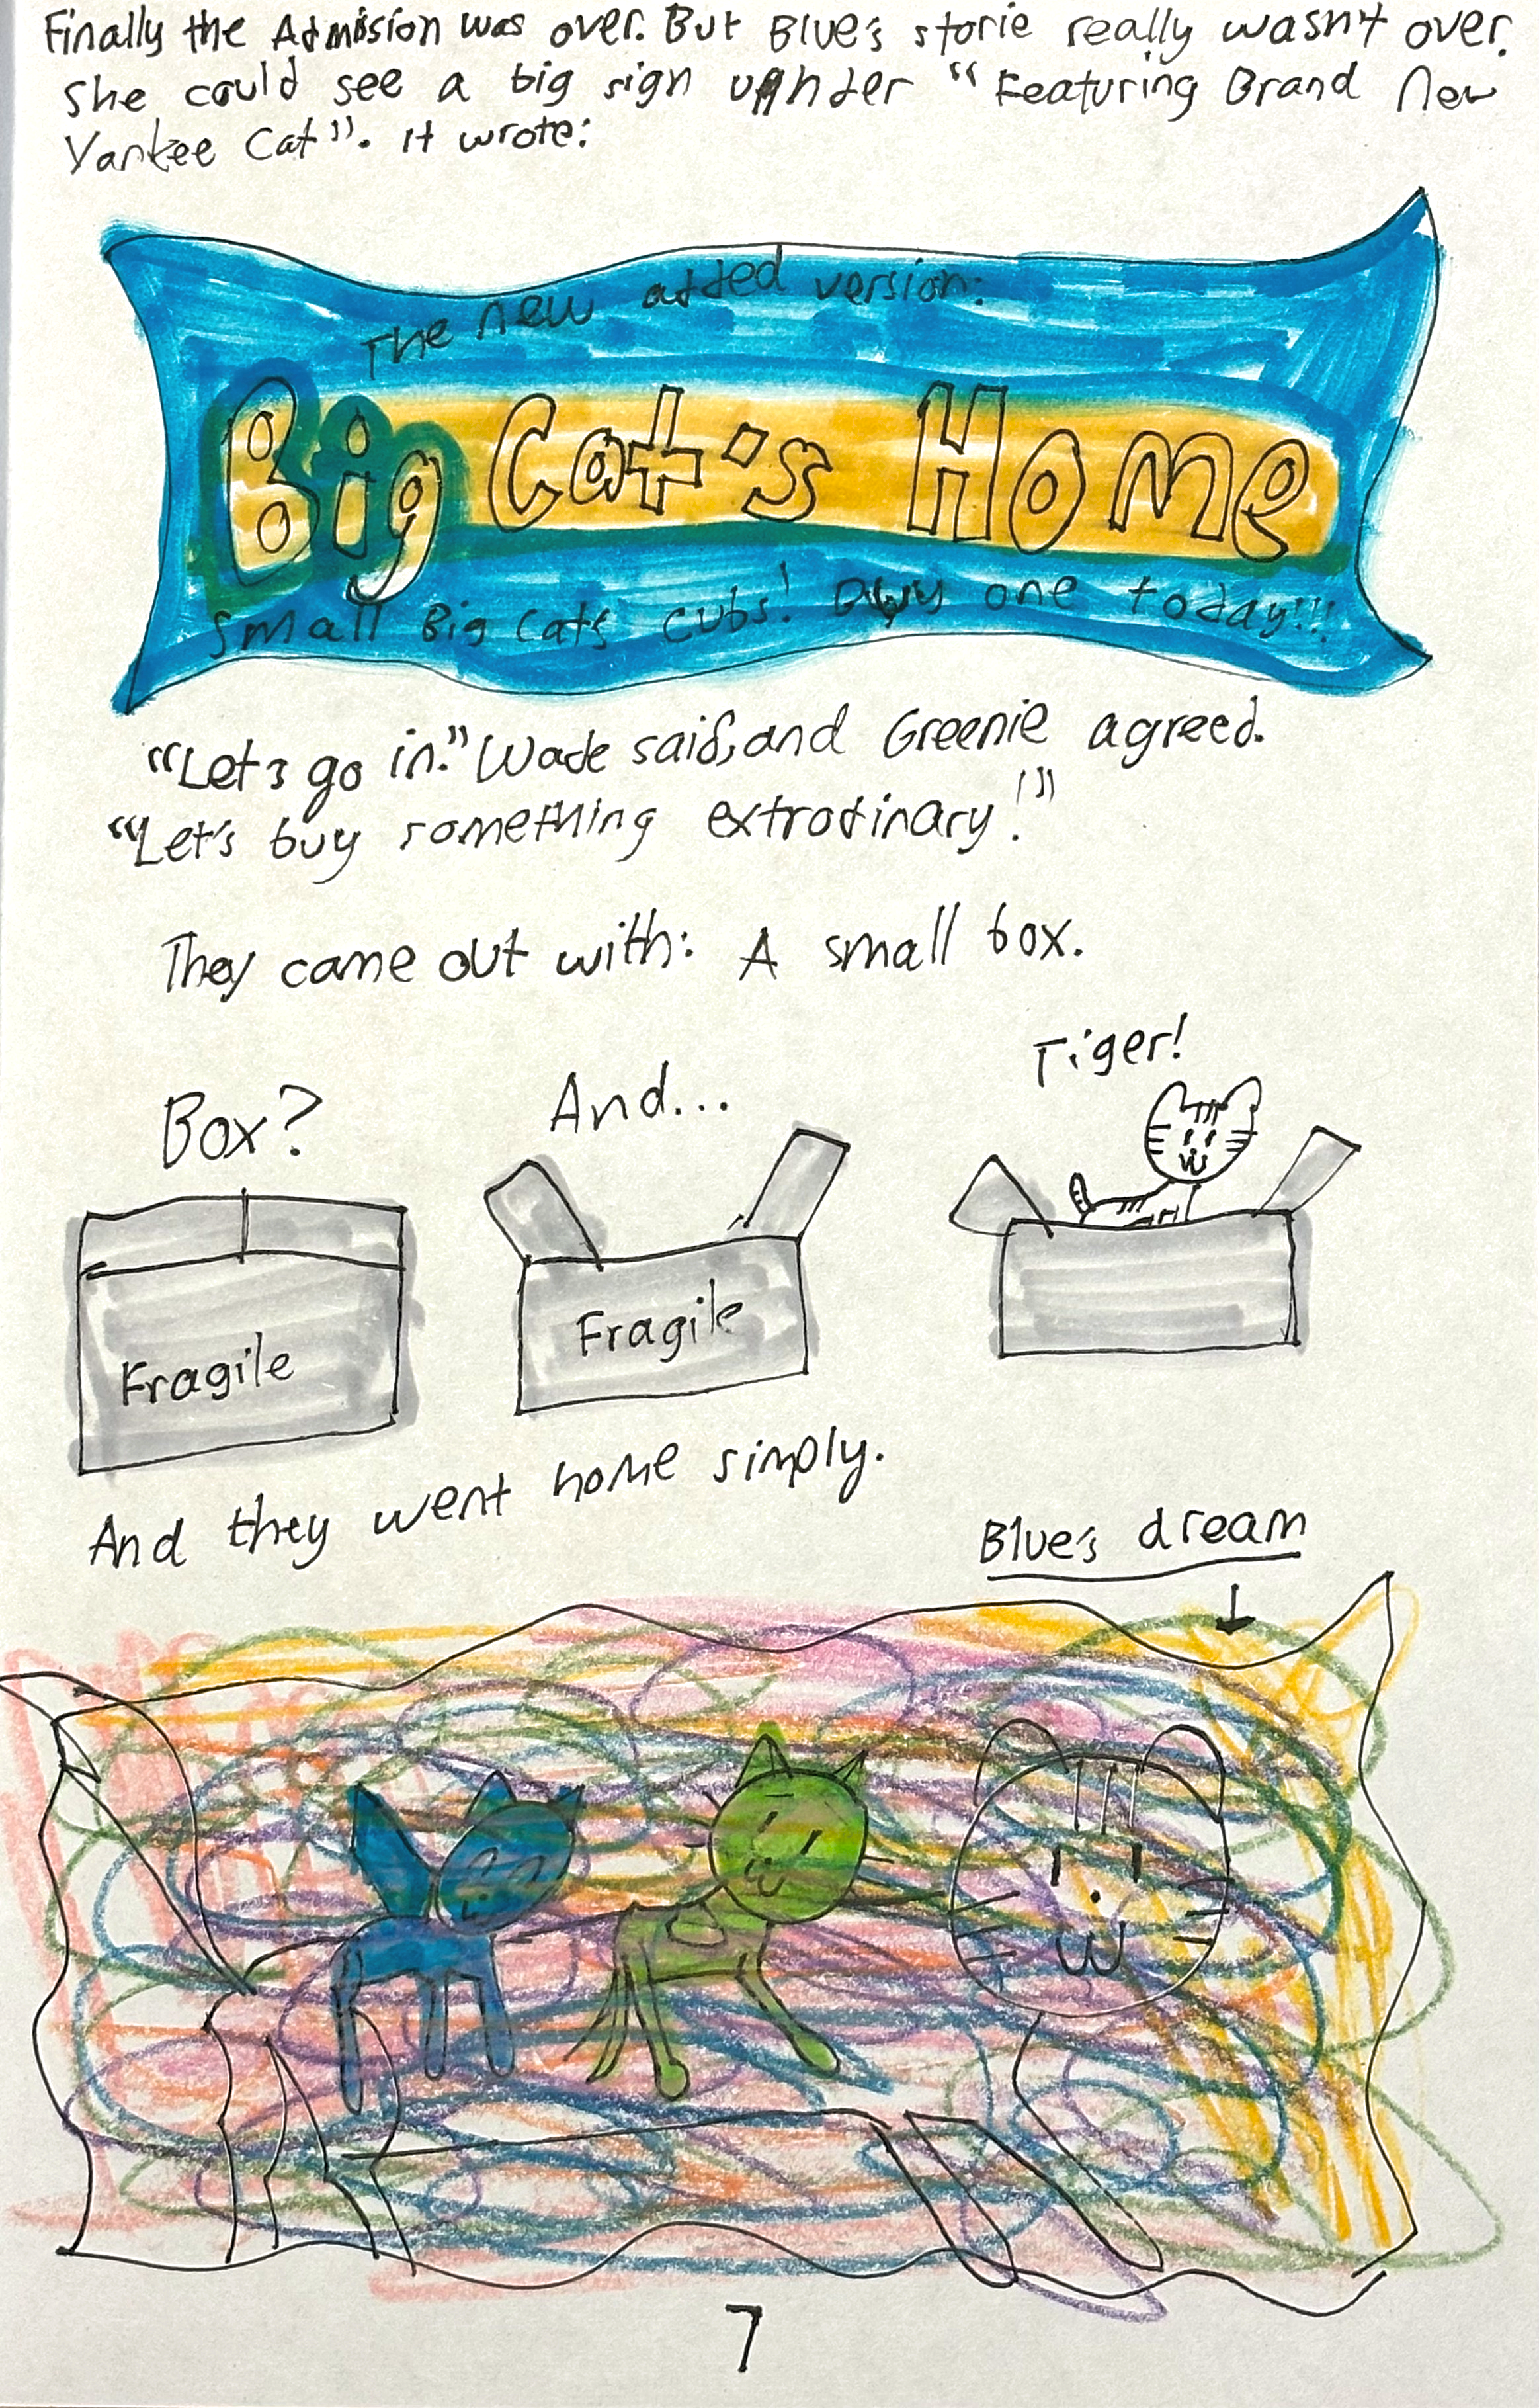 Finally the Admision was over. But Blue's storie really wasn't over.
She could see a big sign unhder "Featuring Brand New
Yankee Cat". It wrote:
The new added version:
Big Cat's Home
Small Big Cats cubs! Buy one today!!!
"Let's go in." Wade said, and Greenie agreed.
"Let's buy something extrodinary!"
They came out with: A small box.
Box?
And...
Tiger!
Fragile
Fragile
And they went home simply.
Blue's dream
7